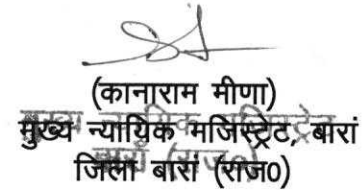 (कानाराम मीणा)
मुख्य न्यायिक मजिस्ट्रेट, बारां
जिला बारां (राज0)